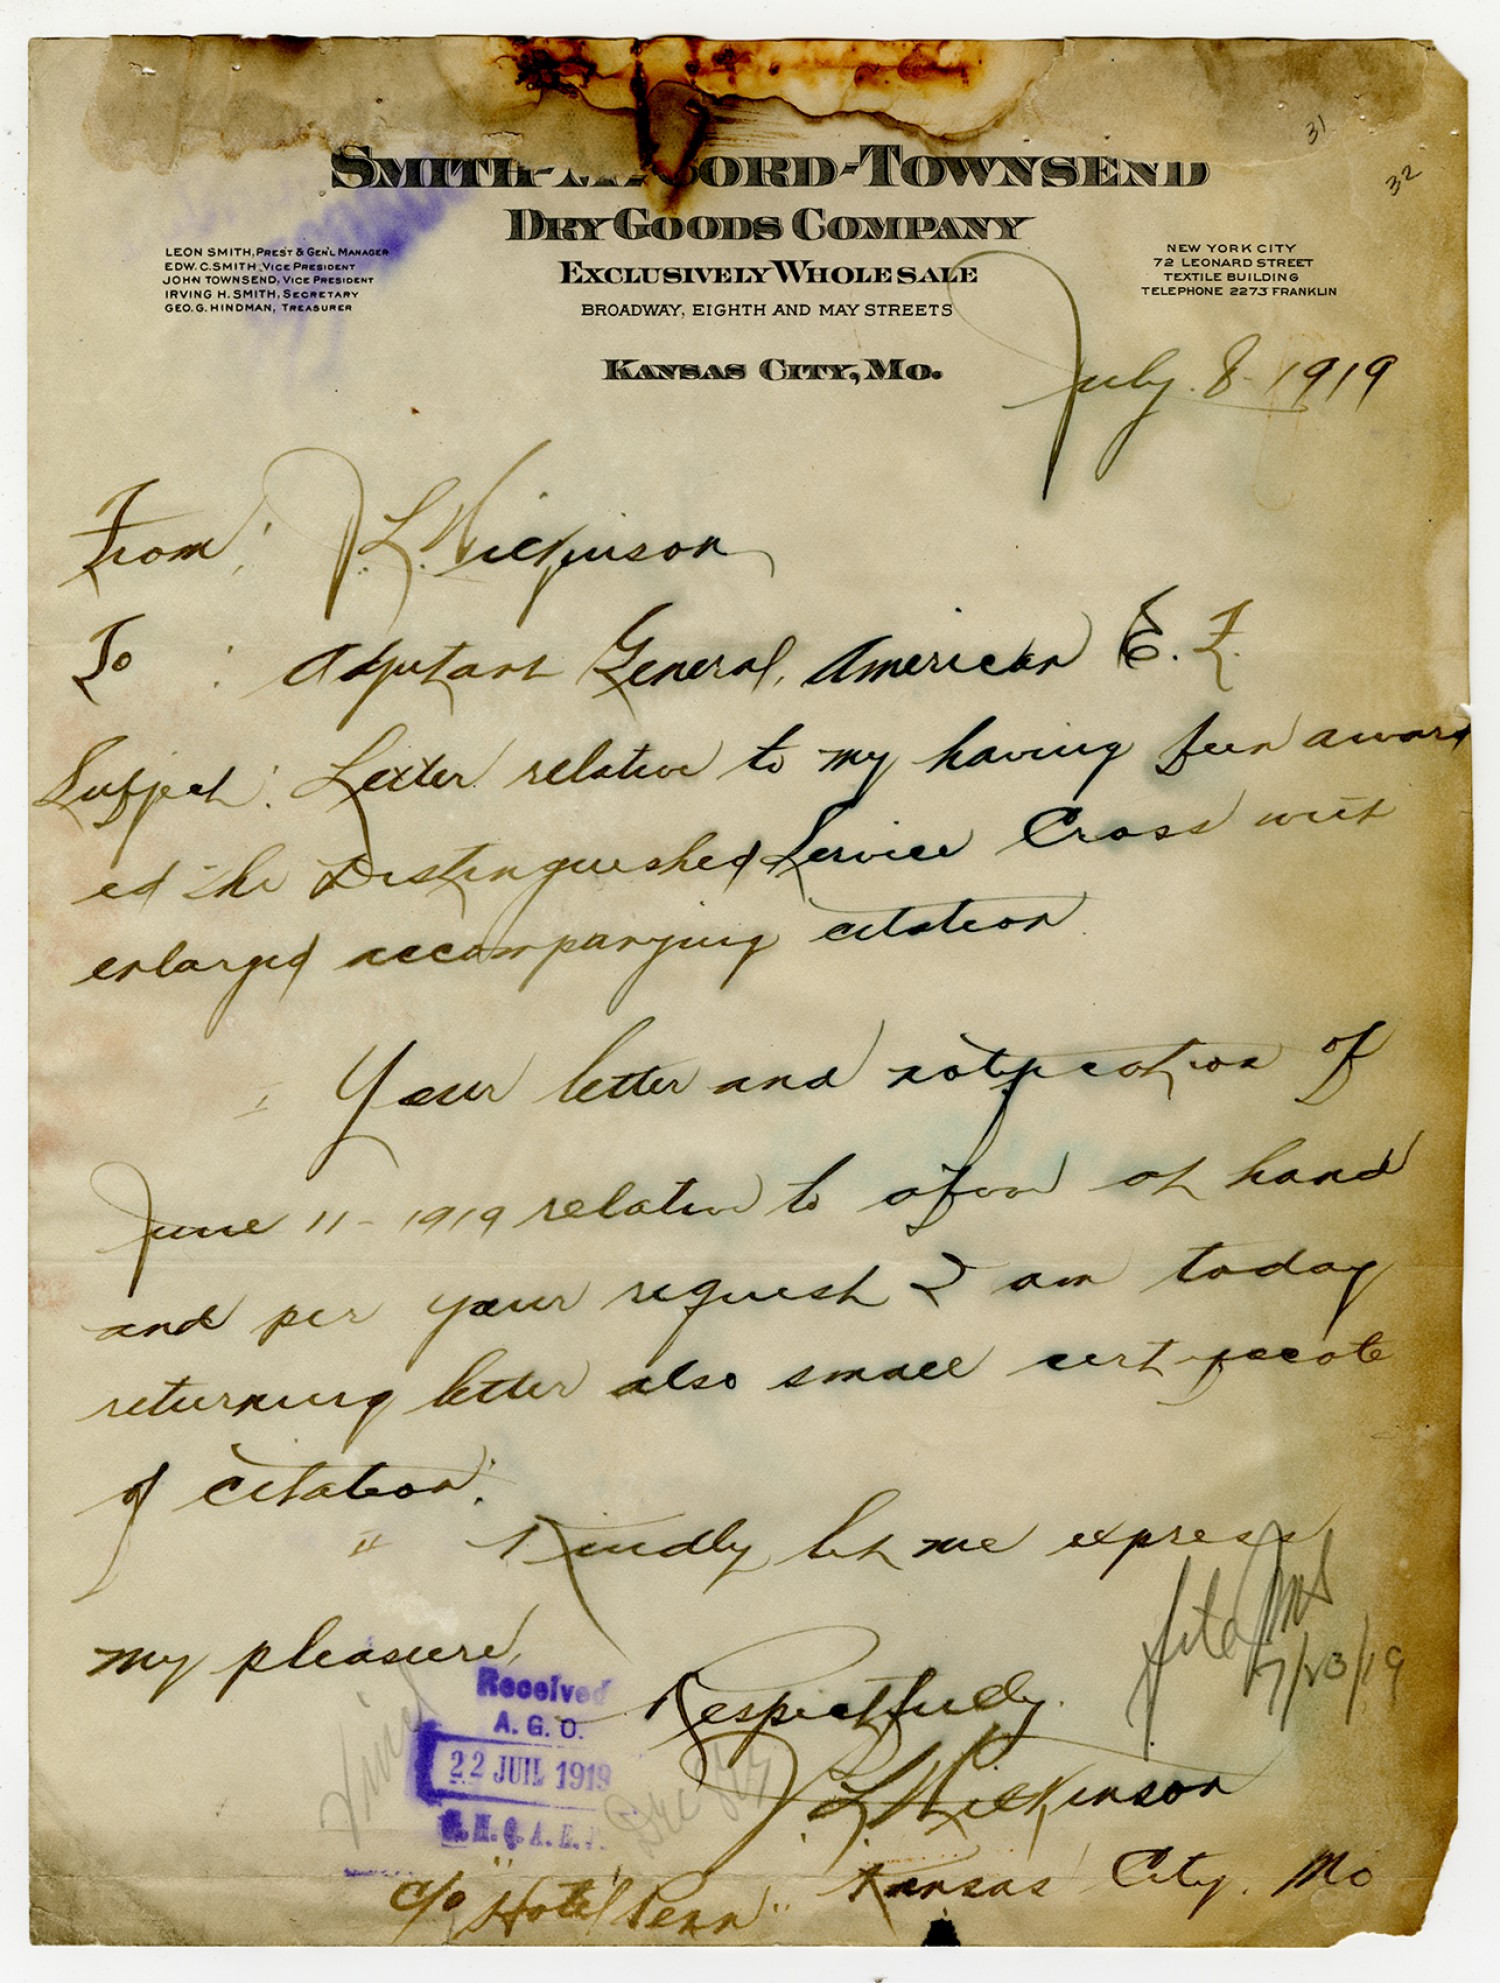 31
32
SMITH- CORD-TOWNSEND
DRY GOODS COMPANY
EXCLUSIVELY WHOLESALE
BROADWAY, EIGHTH AND MAY STREETS
KANSAS CITY, MO.
LEON SMITH, PREST & GEN'L MANAGER
EDW. C. SMITH, VICE PRESIDENT
JOHN TOWNSEND, VICE PRESIDENT
IRVING H. SMITH, SECRETARY
GEO. G. HINDMAN, TREASURER
NEW YORK CITY
72 LEONARD STREET
TEXTILE BUILDING
TELEPHONE 2273 FRANKLIN
July. 8 - 1919
From: J. L. Wilkinson
To : Adjutant General, American E. F.
Subject: Letter relative to my having been award
ed the Distinguished Service Cross with
enlarged accompanying citation.
I Your letter and notification of
June 11 - 1919 relative to above at hand
and per your request I am today
returning letter also small certificate
of citation.
II Kindly let me express
my pleasure,
Respectfully.
J. L. Wilkinson
c/o "Hotel Penn" Kansas City. Mo
Received
A. G. O.
22 JUIL 1919
G. H. Q. A. E. F.
7/23/19